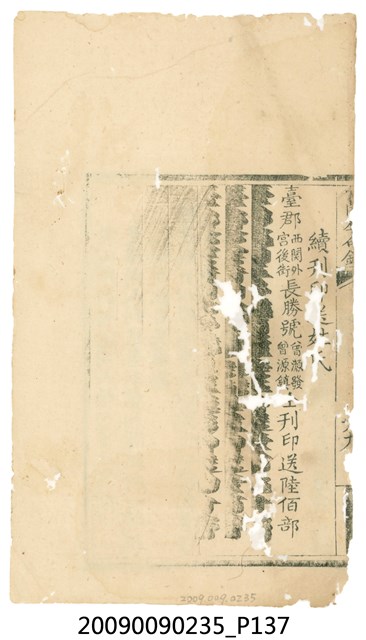 續刊印送姓氏
臺郡西関外宮後街長勝號曾源發曾源鎮仝刊印送陸佰部
2009.009.0235
20090090235_P137